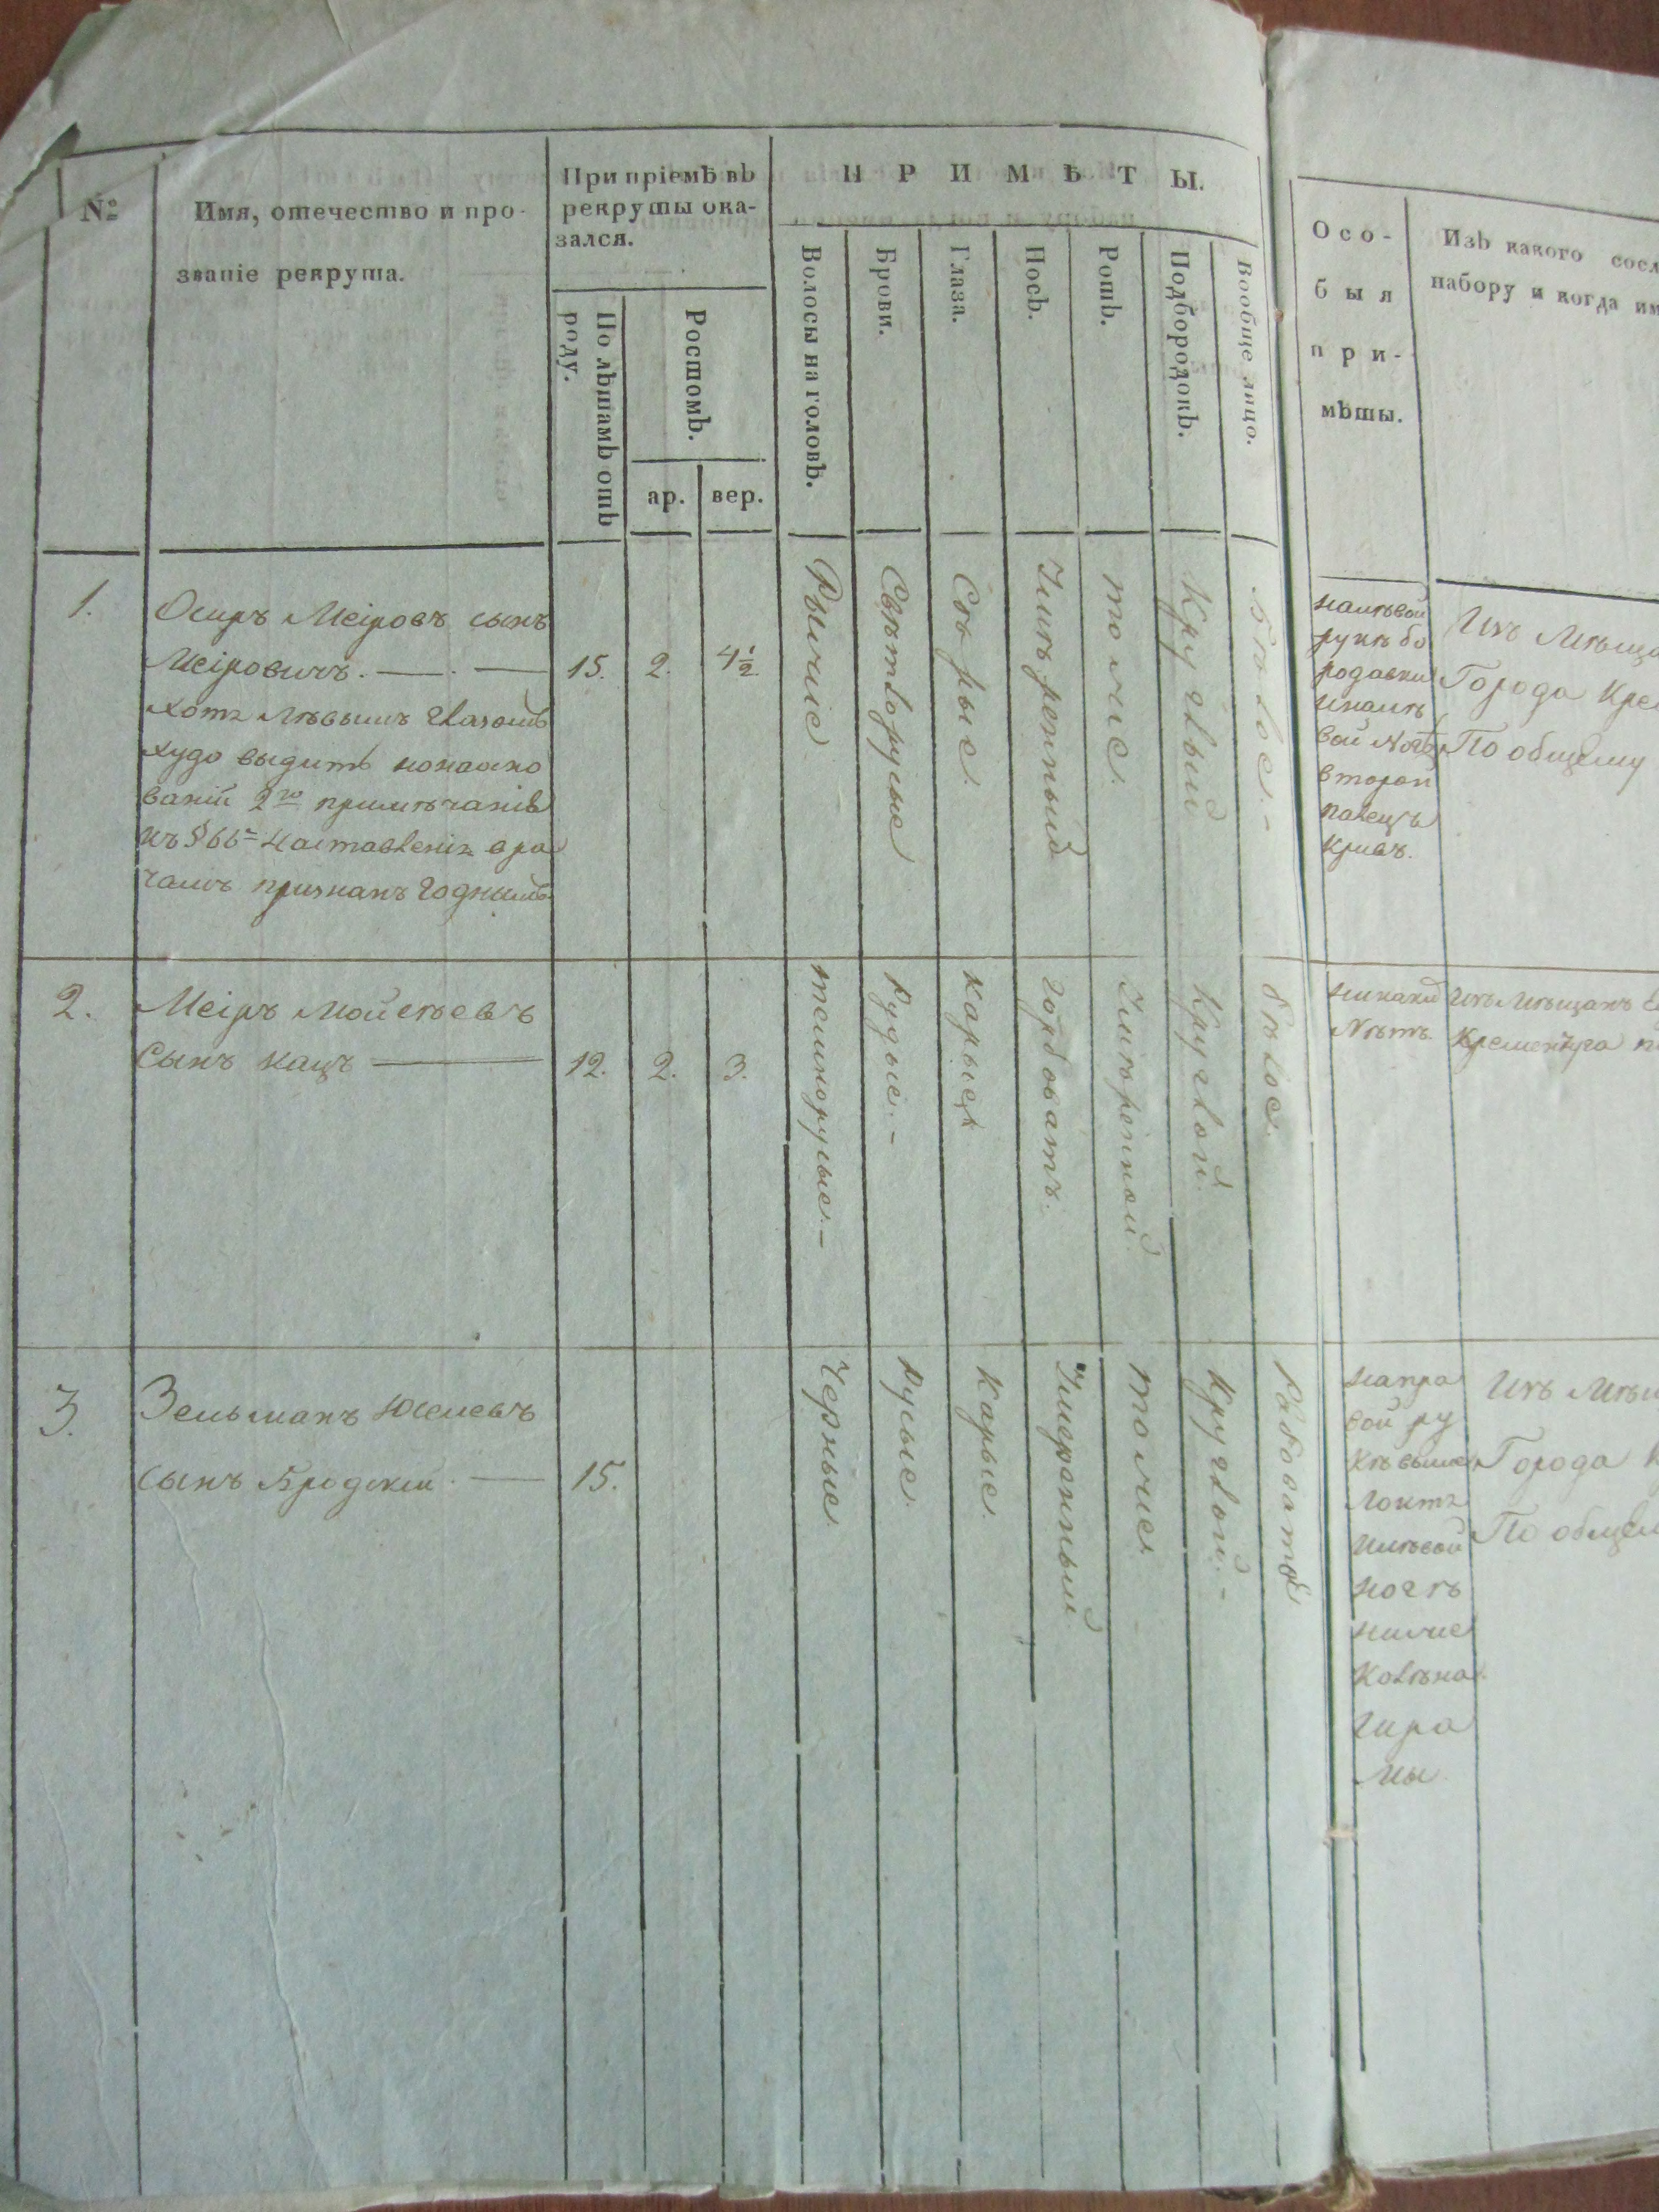 №
Имя, отечество и про-
званіе рекрута.
При пріемѣ въ
рекруты ока-
зался.
По лѣтамъ отъ
роду.
Ростомъ.
ар.
вер.
ПРИМѢТЫ.
Волосы на головѣ.
Брови.
Глаза.
Носъ.
Ротъ.
Подбородокъ.
Вообще лицо.
Осо-
быя
при-
мѣты.
Изъ какого
набору и когда
1.
Осиръ Меіровъ сынъ
Меіровичъ.
хотя лѣвымъ глазомъ
худо видитъ но на осно
ваніи 2го примѣчанія
къ § 66 наставленія вра
чамъ признанъ годнымъ
15.
2.
4½
Рыжіе
Свѣтлорусые
Сѣрые.
Умѣренный
тоже.
Круглый
Бѣлое.
на лѣвой
рукѣ бо
родавки
и на лѣ
вой ногѣ
второй
палецъ
кривъ.
Изъ
Города
По общему
2.
Меіръ Мойсѣевъ
сынъ Кацъ
12.
2.
3.
темнорусые.
Русые.
карые
горбоватъ.
Умѣренной
Круглой.
бѣлое.
никакихъ
нѣтъ.
Изъ мѣщанъ
Кременчуга
3.
Зельманъ Юсіевъ
сынъ Бродскій.
15.
Черные
Русые.
Карые.
Умеренный
тоже
Круглой.
Рябоватъ
на пра
вой ру
кѣ выше
локтя
и лѣвой
ногѣ
ниже
колѣна
Изъ
Города
По